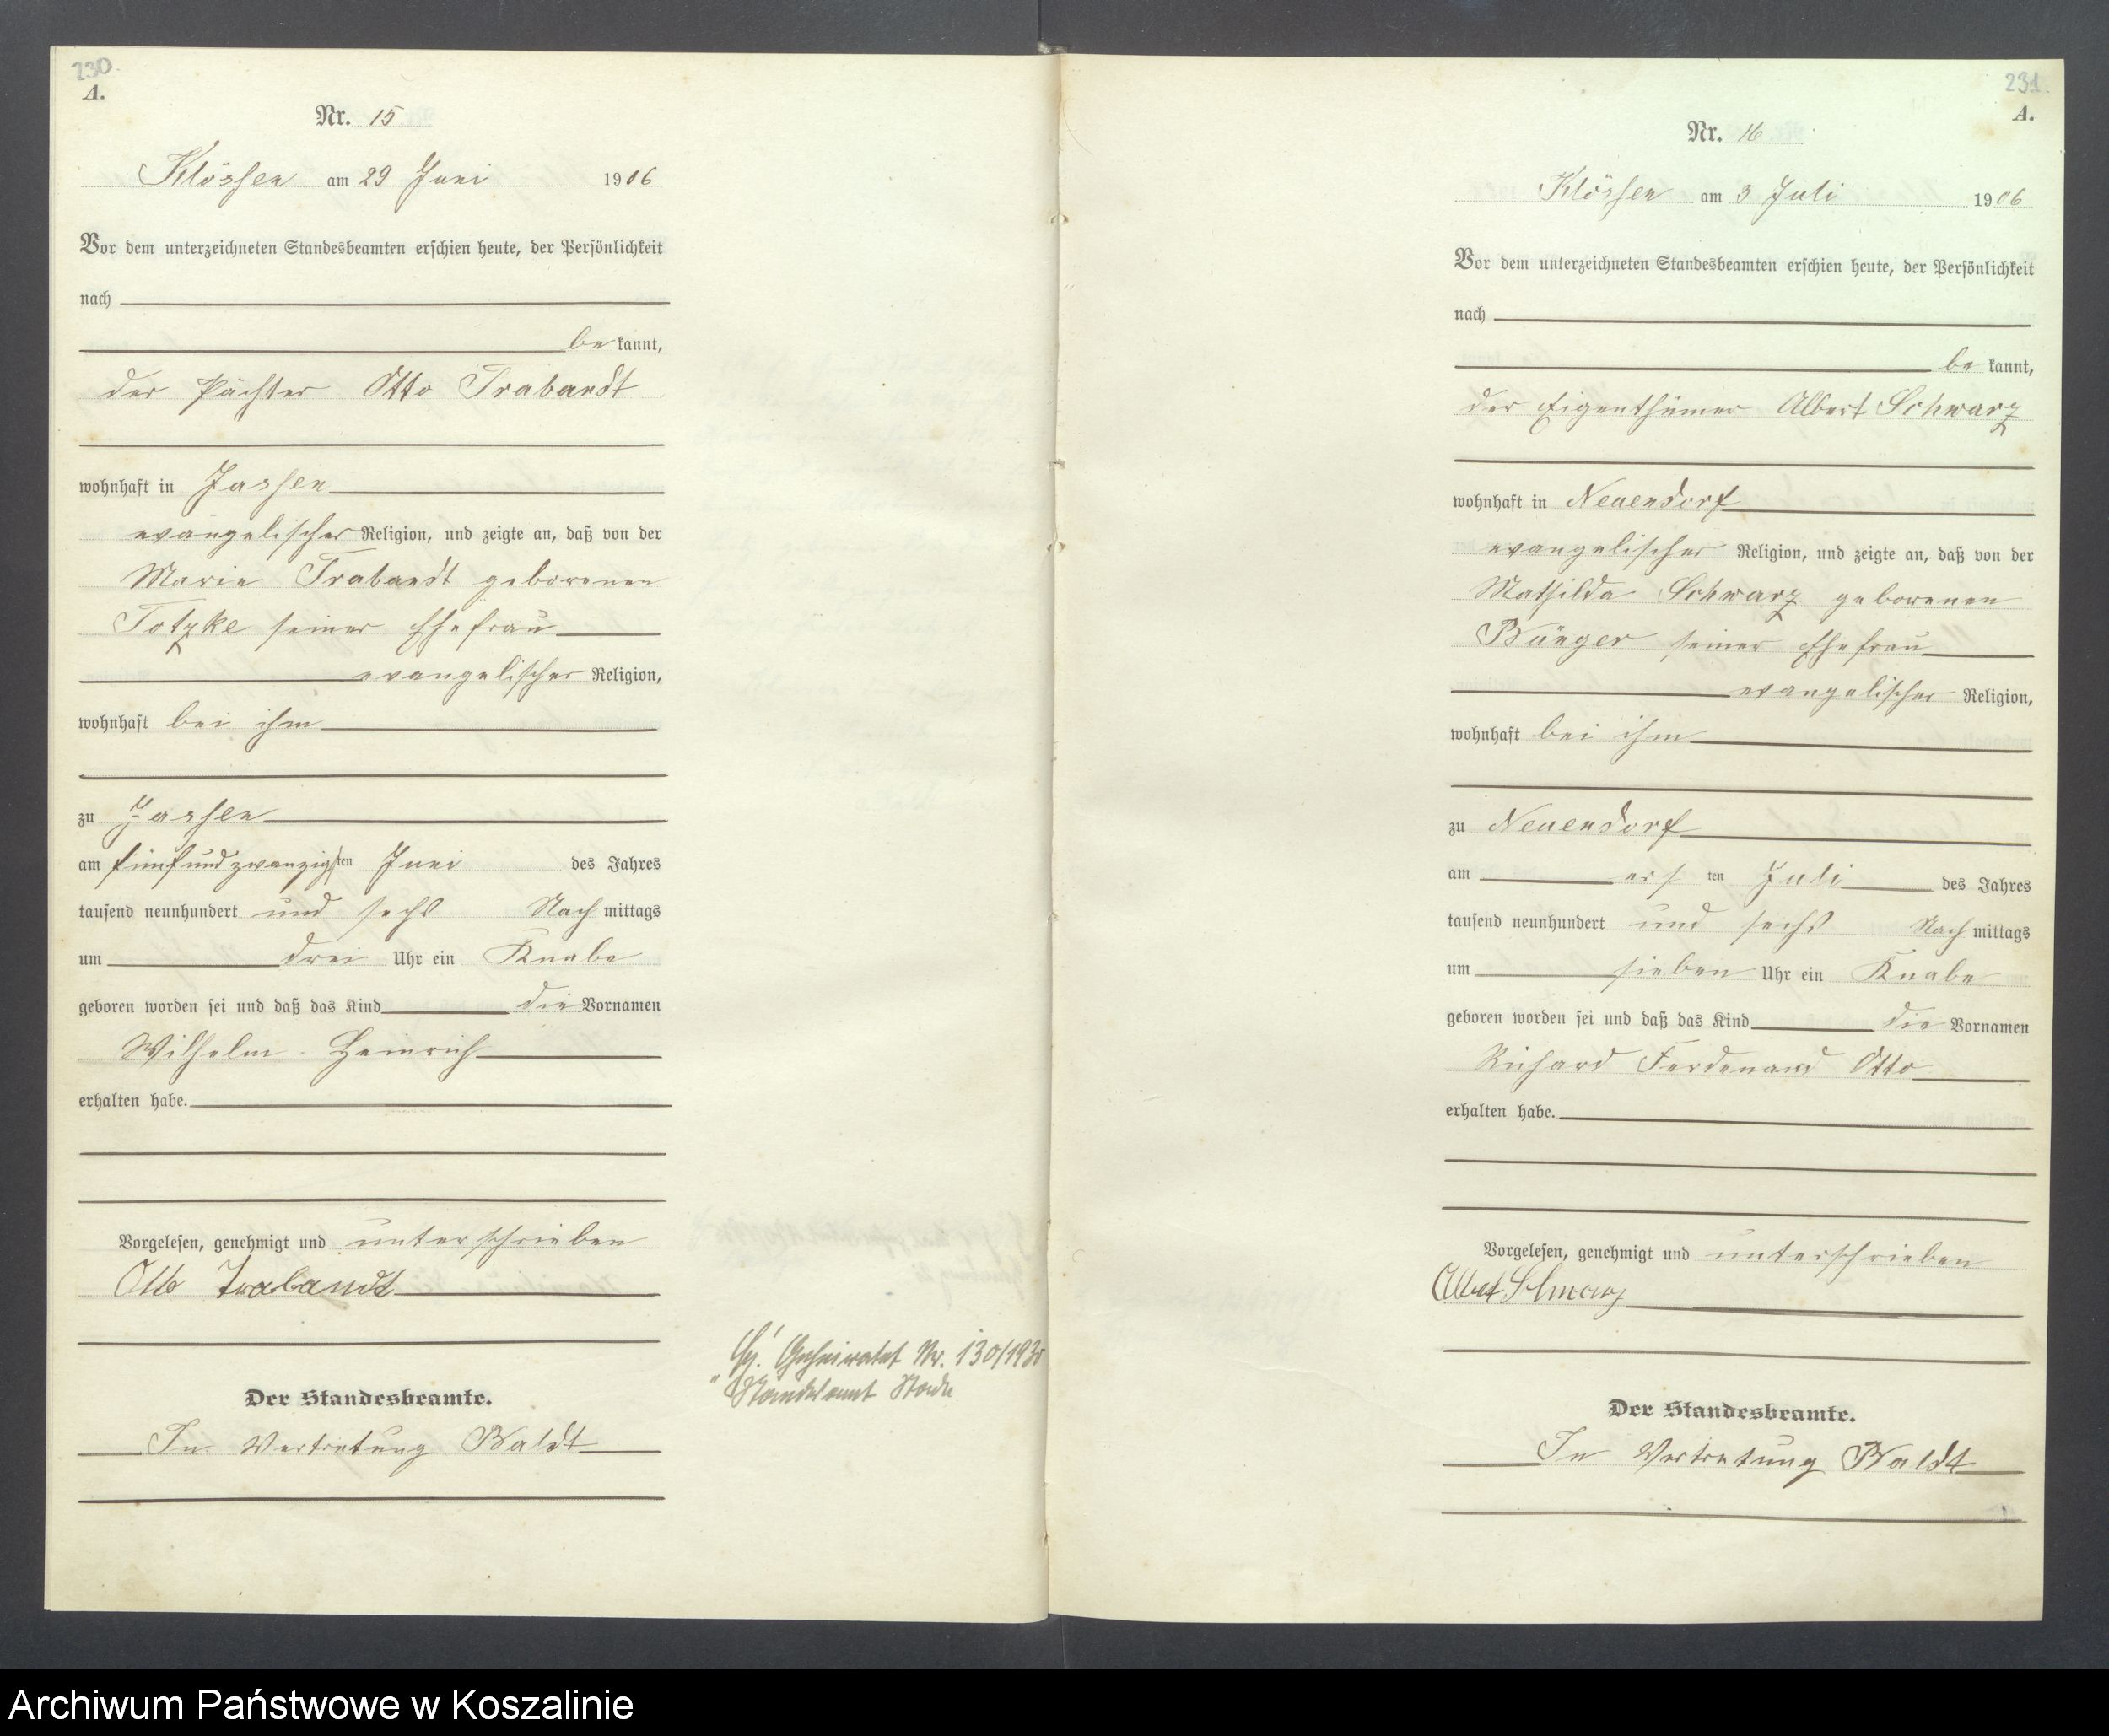 230.
A.
Nr. 15
Klössen am 29 Juni 1906
Vor dem unterzeichneten Standesbeamten erschien heute, der Persönlichkeit
nach
be kannt,
der Pächter Otto Trabandt
wohnhaft in Jassen
evangelischer Religion, und zeigte an, daß von der
Marie Trabandt geborenen
Totzke seiner Ehefrau
evangelischer Religion,
wohnhaft bei ihm
zu Jassen
am fünfundzwanzigsten Juni des Jahres
tausend neunhundert und sechs Nach mittags
um drei Uhr ein Knabe
geboren worden sei und daß das Kind die Vornamen
Wilhelm Heinrich
erhalten habe.
Vorgelesen, genehmigt und unterschrieben
Otto Trabandt
Der Standesbeamte.
In Vertretung Waldt
Geheiratet Nr. 130/193
Standesamt
231.
A.
Nr. 16
Klössen am 3 Juli 1906
Vor dem unterzeichneten Standesbeamten erschien heute, der Persönlichkeit
nach
be kannt,
der Eigenthümer Albert Schwarz
wohnhaft in Neuendorf
evangelischer Religion, und zeigte an, daß von der
Mathilda Schwarz geborenen
Bünger seiner Ehefrau
evangelischer Religion,
wohnhaft bei ihm
zu Neuendorf
am ers ten Juli des Jahres
tausend neunhundert und sechs Nach mittags
um sieben Uhr ein Knabe
geboren worden sei und daß das Kind die Vornamen
Richard Ferdenand Otto
erhalten habe.
Vorgelesen, genehmigt und unterschrieben
Albert Schwarz
Der Standesbeamte.
In Vertretung Waldt
Archiwum Państwowe w Koszalinie